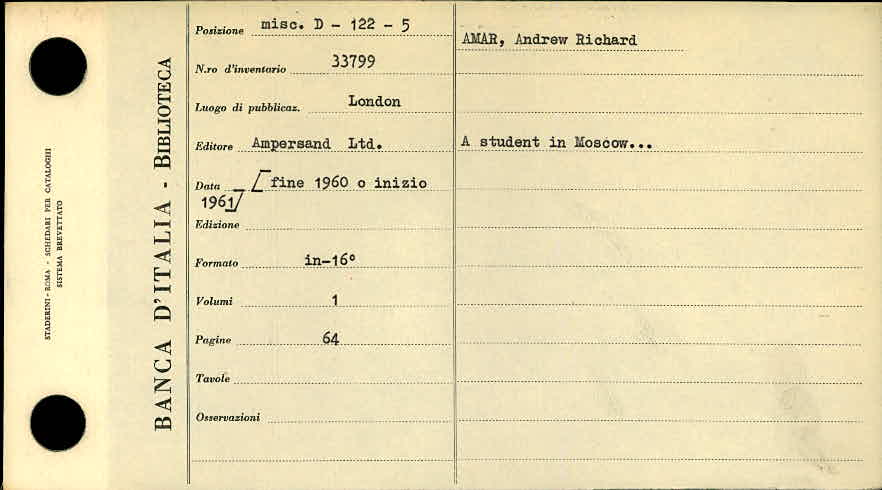 STADERINI - ROMA - SCHEDARI PER CATALOGHI
SISTEMA BREVETTATO
BANCA D'ITALIA - BIBLIOTECA
Posizione misc. D - 122 - 5
N.ro d'inventario 33799
Luogo di pubblicaz. London
Editore Ampersand Ltd.
Data [fine 1960 o inizio
1961]
Edizione
Formato in-16°
Volumi 1
Pagine 64
Tavole
Osservazioni
AMAR, Andrew Richard
A student in Moscow...